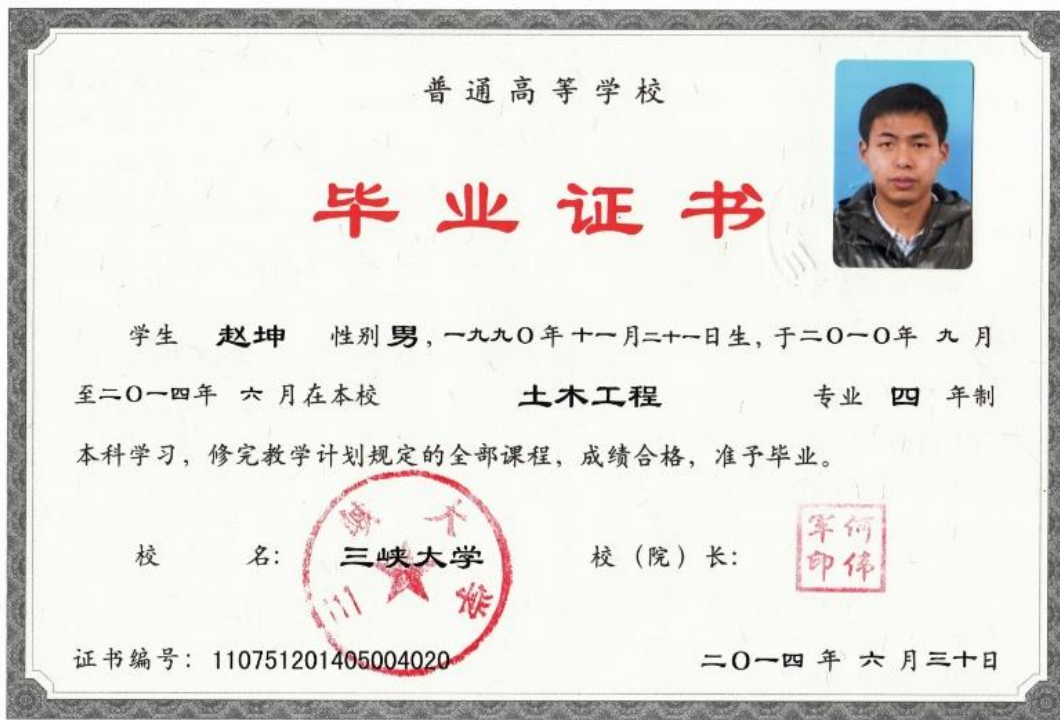 普通高等学校
毕业证书
学生 赵坤 性别 男，一九九〇年十一月二十一日生，于二〇一〇年 九 月
至二〇一四年 六 月在本校 土木工程 专业 四 年制
本科学习，修完教学计划规定的全部课程，成绩合格，准予毕业。
校 名： 三峡大学 校（院）长：
三峡大学
何伟军印
证书编号：110751201405004020 二〇一四 年 六 月三十日